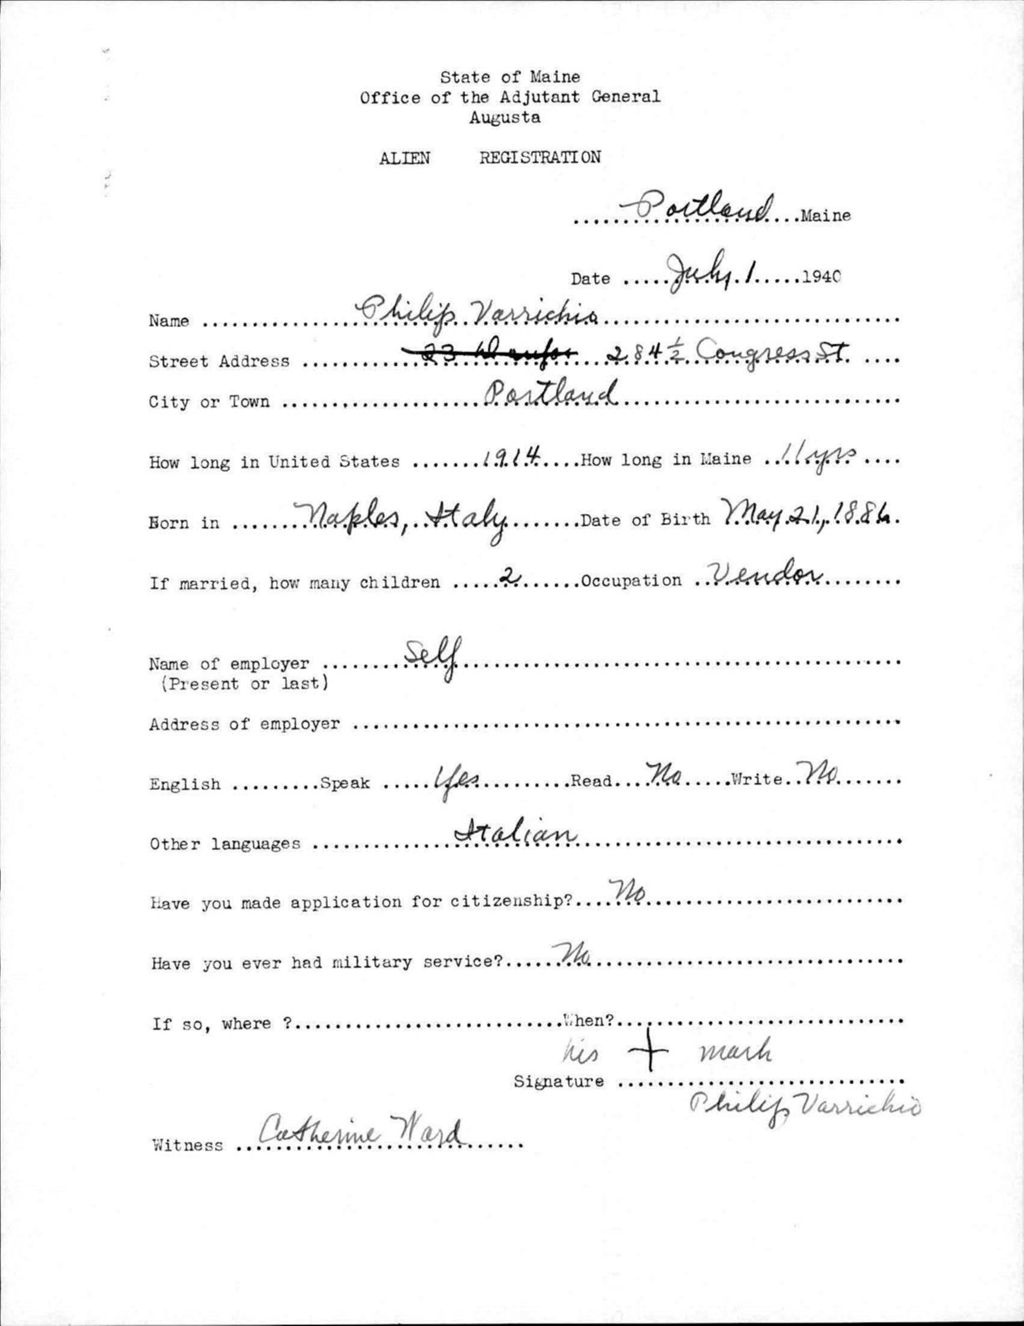 State of Maine
Office of the Adjutant General
Augusta
ALIEN REGISTRATION
Portland Maine
Date July 1 1940
Name Philip Varrichio
Street Address 23 284 ½ Congress St.
City or Town Portland
How long in United States 1914 How long in Maine 11 yrs
Born in Naples, Italy Date of Birth May 21, 1886
If married, how many children 2 Occupation Vendor
Name of employer Self
(Present or last)
Address of employer
English Speak Yes Read No Write No
Other languages Italian
Have you made application for citizenship? No
Have you ever had military service? No
If so, where ? When?
his + mark
Signature
Philip Varrichio
Witness Catherine Ward